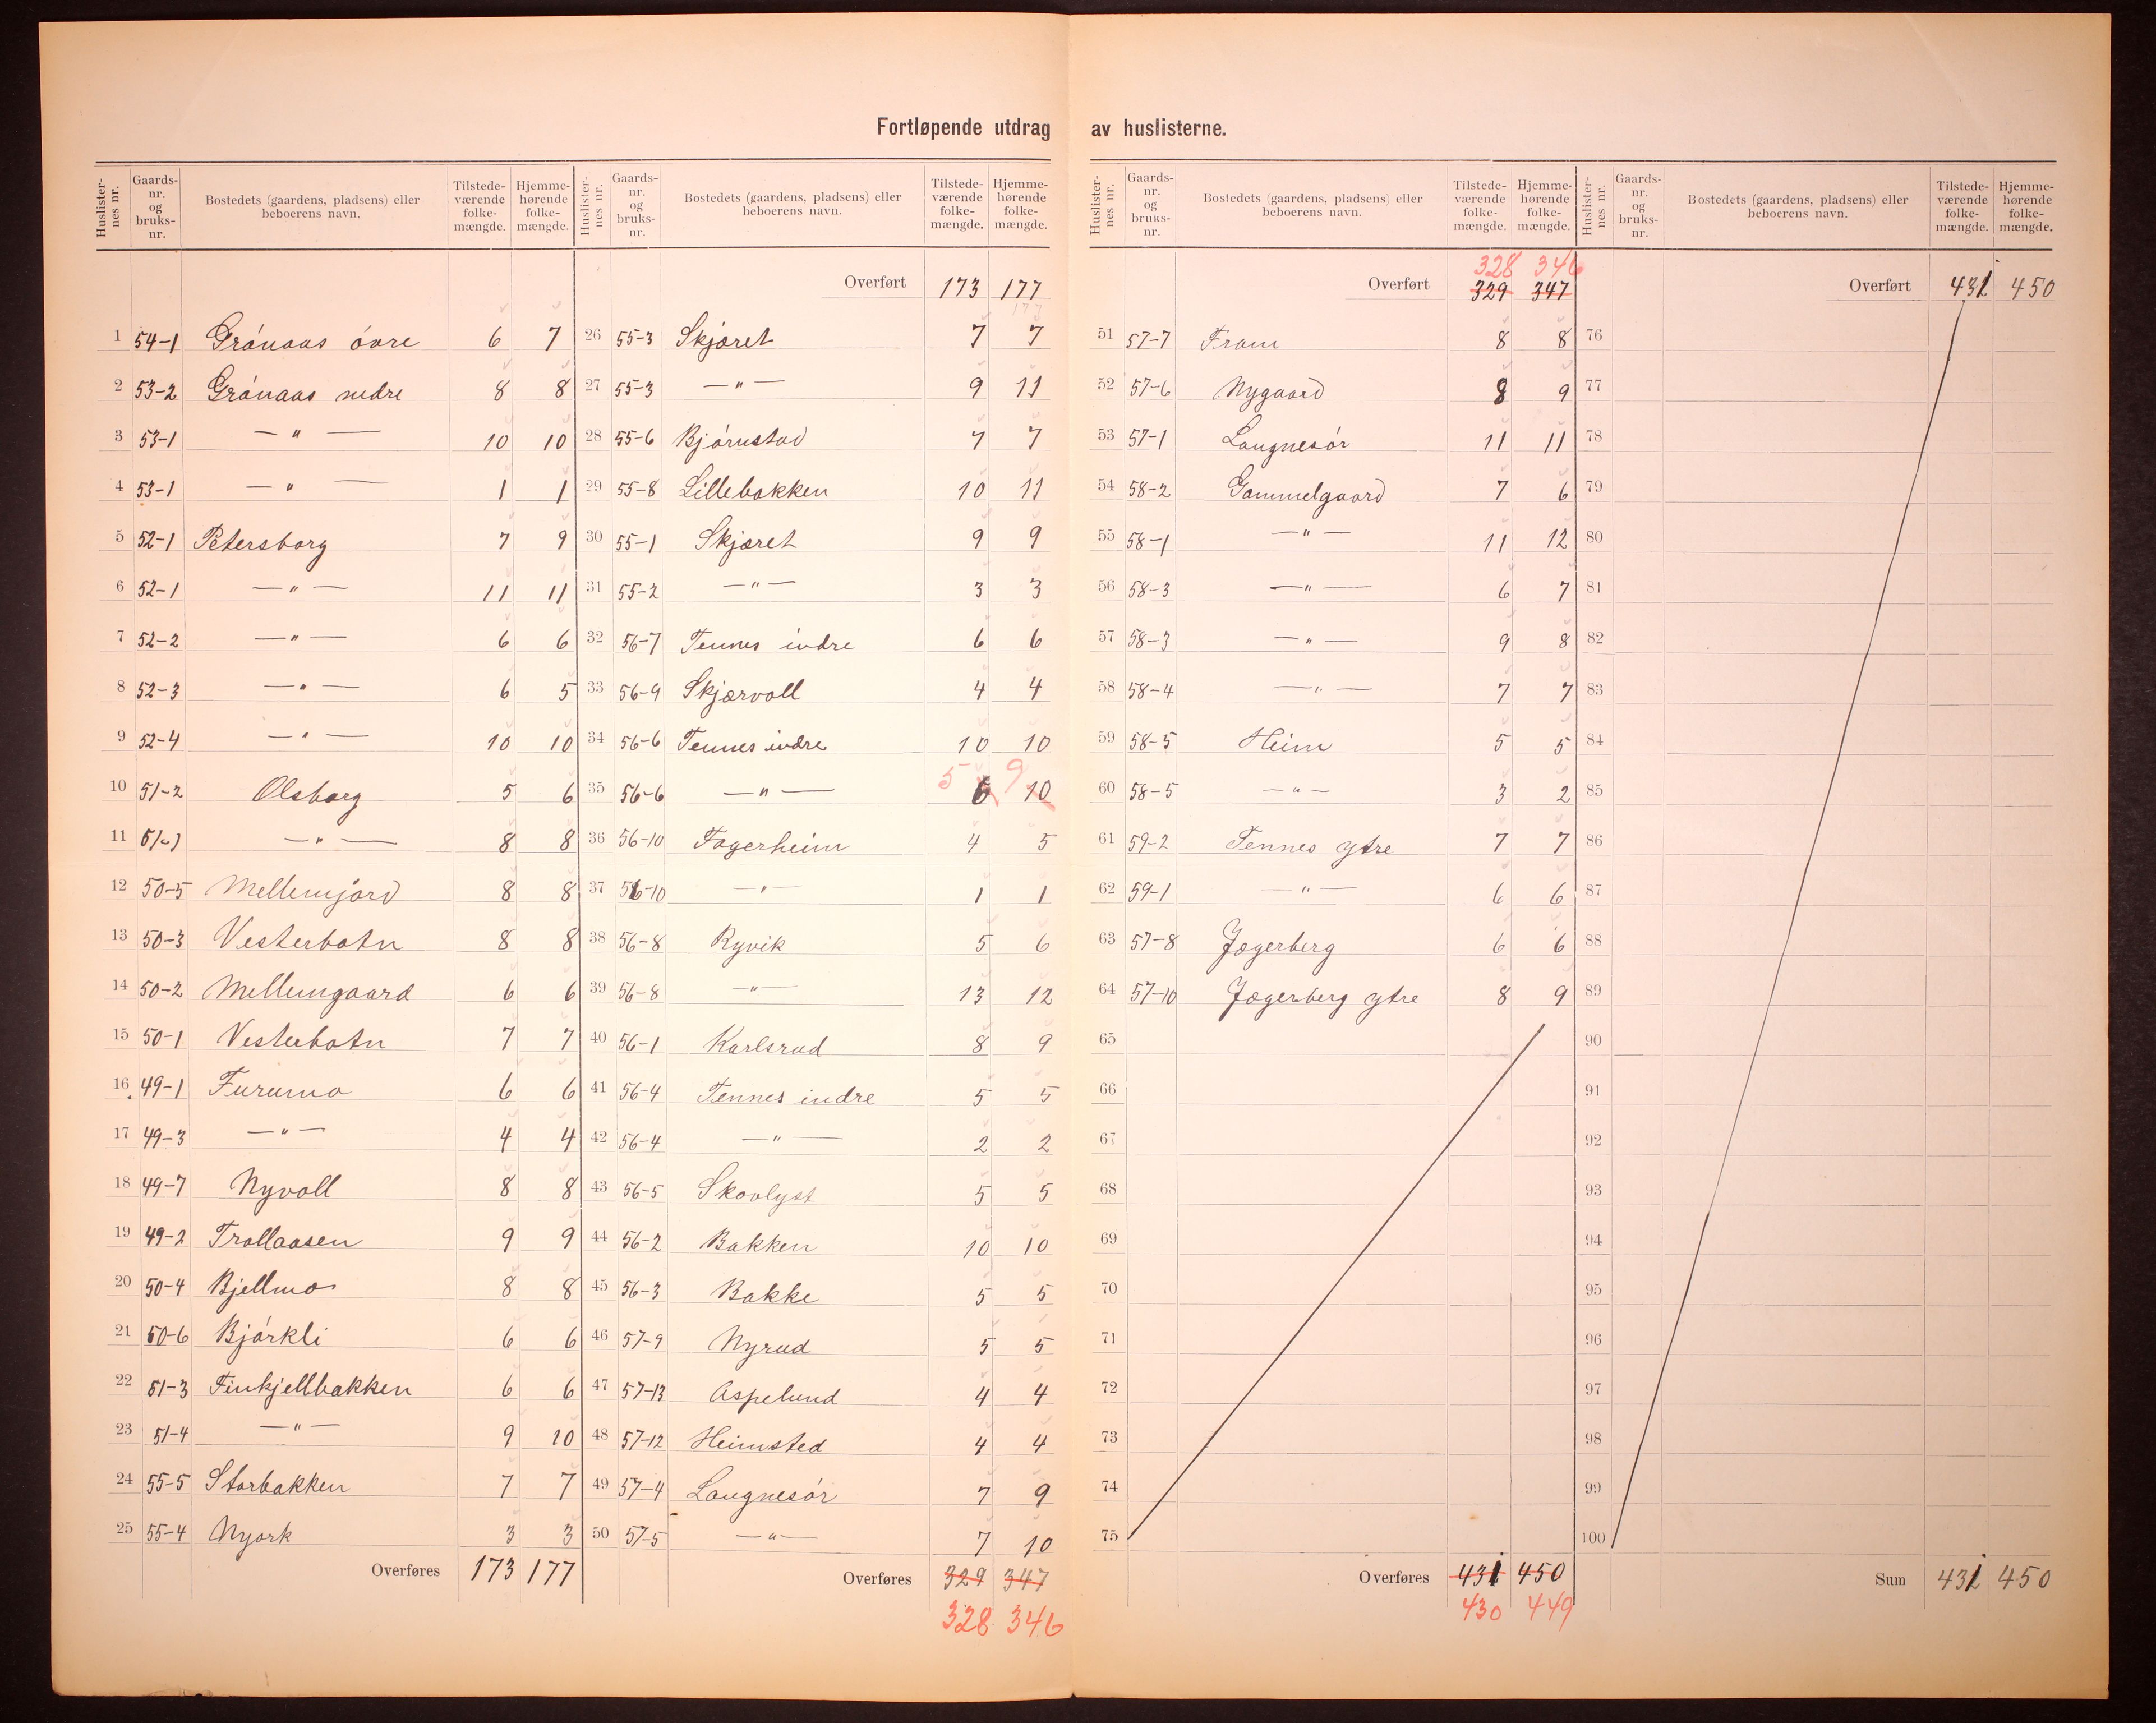 Fortløpende utdrag av huslisterne.
Huslister-nes nr. Gaards-nr. og bruks-nr. Bostedets (gaardens, pladsens) eller beboerens navn. Tilstede-værende folke-mængde. Hjemme-hørende folke-mængde.
1 54-1 Grónaas óvre 6 7
2 53-2 Grónaas nedre 8 8
3 53-1 — " — 10 10
4 53-1 — " — 1 1
5 52-1 Petersborg 7 9
6 52-1 — " — 11 11
7 52-2 — " — 6 6
8 52-3 — " — 6 5
9 52-4 — " — 10 10
10 51-2 Olsborg 5 6
11 51-1 — " — 8 8
12 50-5 Mellemjord 8 8
13 50-3 Vesterbotn 8 8
14 50-2 Mellemgaard 6 6
15 50-1 Vesterbotn 7 7
16 49-1 Furumo 6 6
17 49-3 — " — 4 4
18 49-7 Nyvoll 8 8
19 49-2 Trollaasen 9 9
20 50-4 Bjellmo 8 8
21 50-6 Bjórkli 6 6
22 51-3 Finkjellbakken 6 6
23 51-4 — " — 9 10
24 55-5 Storbakken 7 7
25 55-4 Nyork 3 3
Overføres 173 177
Huslister-nes nr. Gaards-nr. og bruks-nr. Bostedets (gaardens, pladsens) eller beboerens navn. Tilstede-værende folke-mængde. Hjemme-hørende folke-mængde.
Overført 173 177
177
26 55-3 Skjæret 7 7
27 55-3 — " — 9 11
28 55-6 Bjórnstad 7 7
29 55-8 Lillebakken 10 11
30 55-1 Skjæret 9 9
31 55-2 — " — 3 3
32 56-7 Tennes indre 6 6
33 56-9 Skjærvoll 4 4
34 56-6 Tennes indre 10 10
5 9
35 56-6 — " — 6 10
36 56-10 Fagerheim 4 5
37 56-10 — " — 1 1
38 56-8 Ryvik 5 6
39 56-8 — " — 13 12
40 56-1 Karlsrud 8 9
41 56-4 Tennes indre 5 5
42 56-4 — " — 2 2
43 56-5 Skovlyst 5 5
44 56-2 Bakken 10 10
45 56-3 Bakke 5 5
46 57-9 Nyrud 5 5
47 57-13 Aspelund 4 4
48 57-12 Heimsted 4 4
49 57-4 Langnesór 7 9
50 57-5 — " — 7 10
Overføres 329 347
328 346
Huslister-nes nr. Gaards-nr. og bruks-nr. Bostedets (gaardens, pladsens) eller beboerens navn. Tilstede-værende folke-mængde. Hjemme-hørende folke-mængde.
328 346
Overført 329 347
51 57-7 Fram 8 8
52 57-6 Nygaard 8 9
53 57-1 Langnesór 11 11
54 58-2 Gammelgaard 7 6
55 58-1 — " — 11 12
56 58-3 — " — 6 7
57 58-3 — " — 9 8
58 58-4 — " — 7 7
59 58-5 Heim 5 5
60 58-5 — " — 3 2
61 59-2 Tennes ytre 7 7
62 59-1 — " — 6 6
63 57-8 Jægerberg 6 6
64 57-10 Jægerberg ytre 8 9
65
66
67
68
69
70
71
72
73
74
75
Overføres 431 450
430 449
Huslister-nes nr. Gaards-nr. og bruks-nr. Bostedets (gaardens, pladsens) eller beboerens navn. Tilstede-værende folke-mængde. Hjemme-hørende folke-mængde.
Overført 431 450
76
77
78
79
80
81
82
83
84
85
86
87
88
89
90
91
92
93
94
95
96
97
98
99
100
Sum 431 450